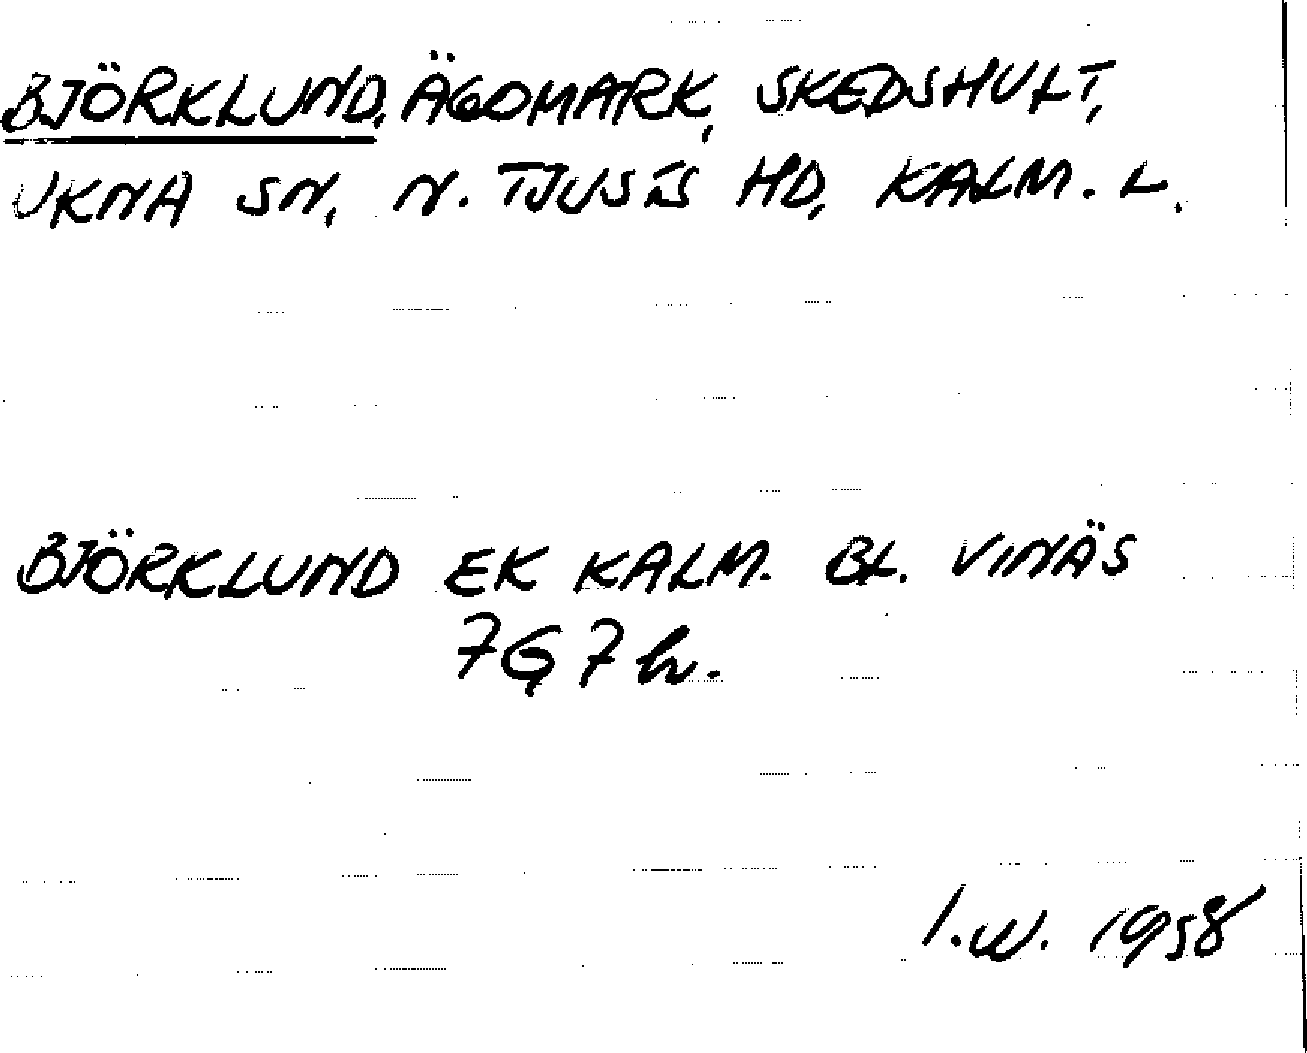 BJÖRKLUND, ÄGOMARK, SKEDSHULT,
UKNA SN, N. TJUSTS HD, KALM. L.
BJÖRKLUND EK KALM. BL. VINÄS
7G7h.
I.W. 1958